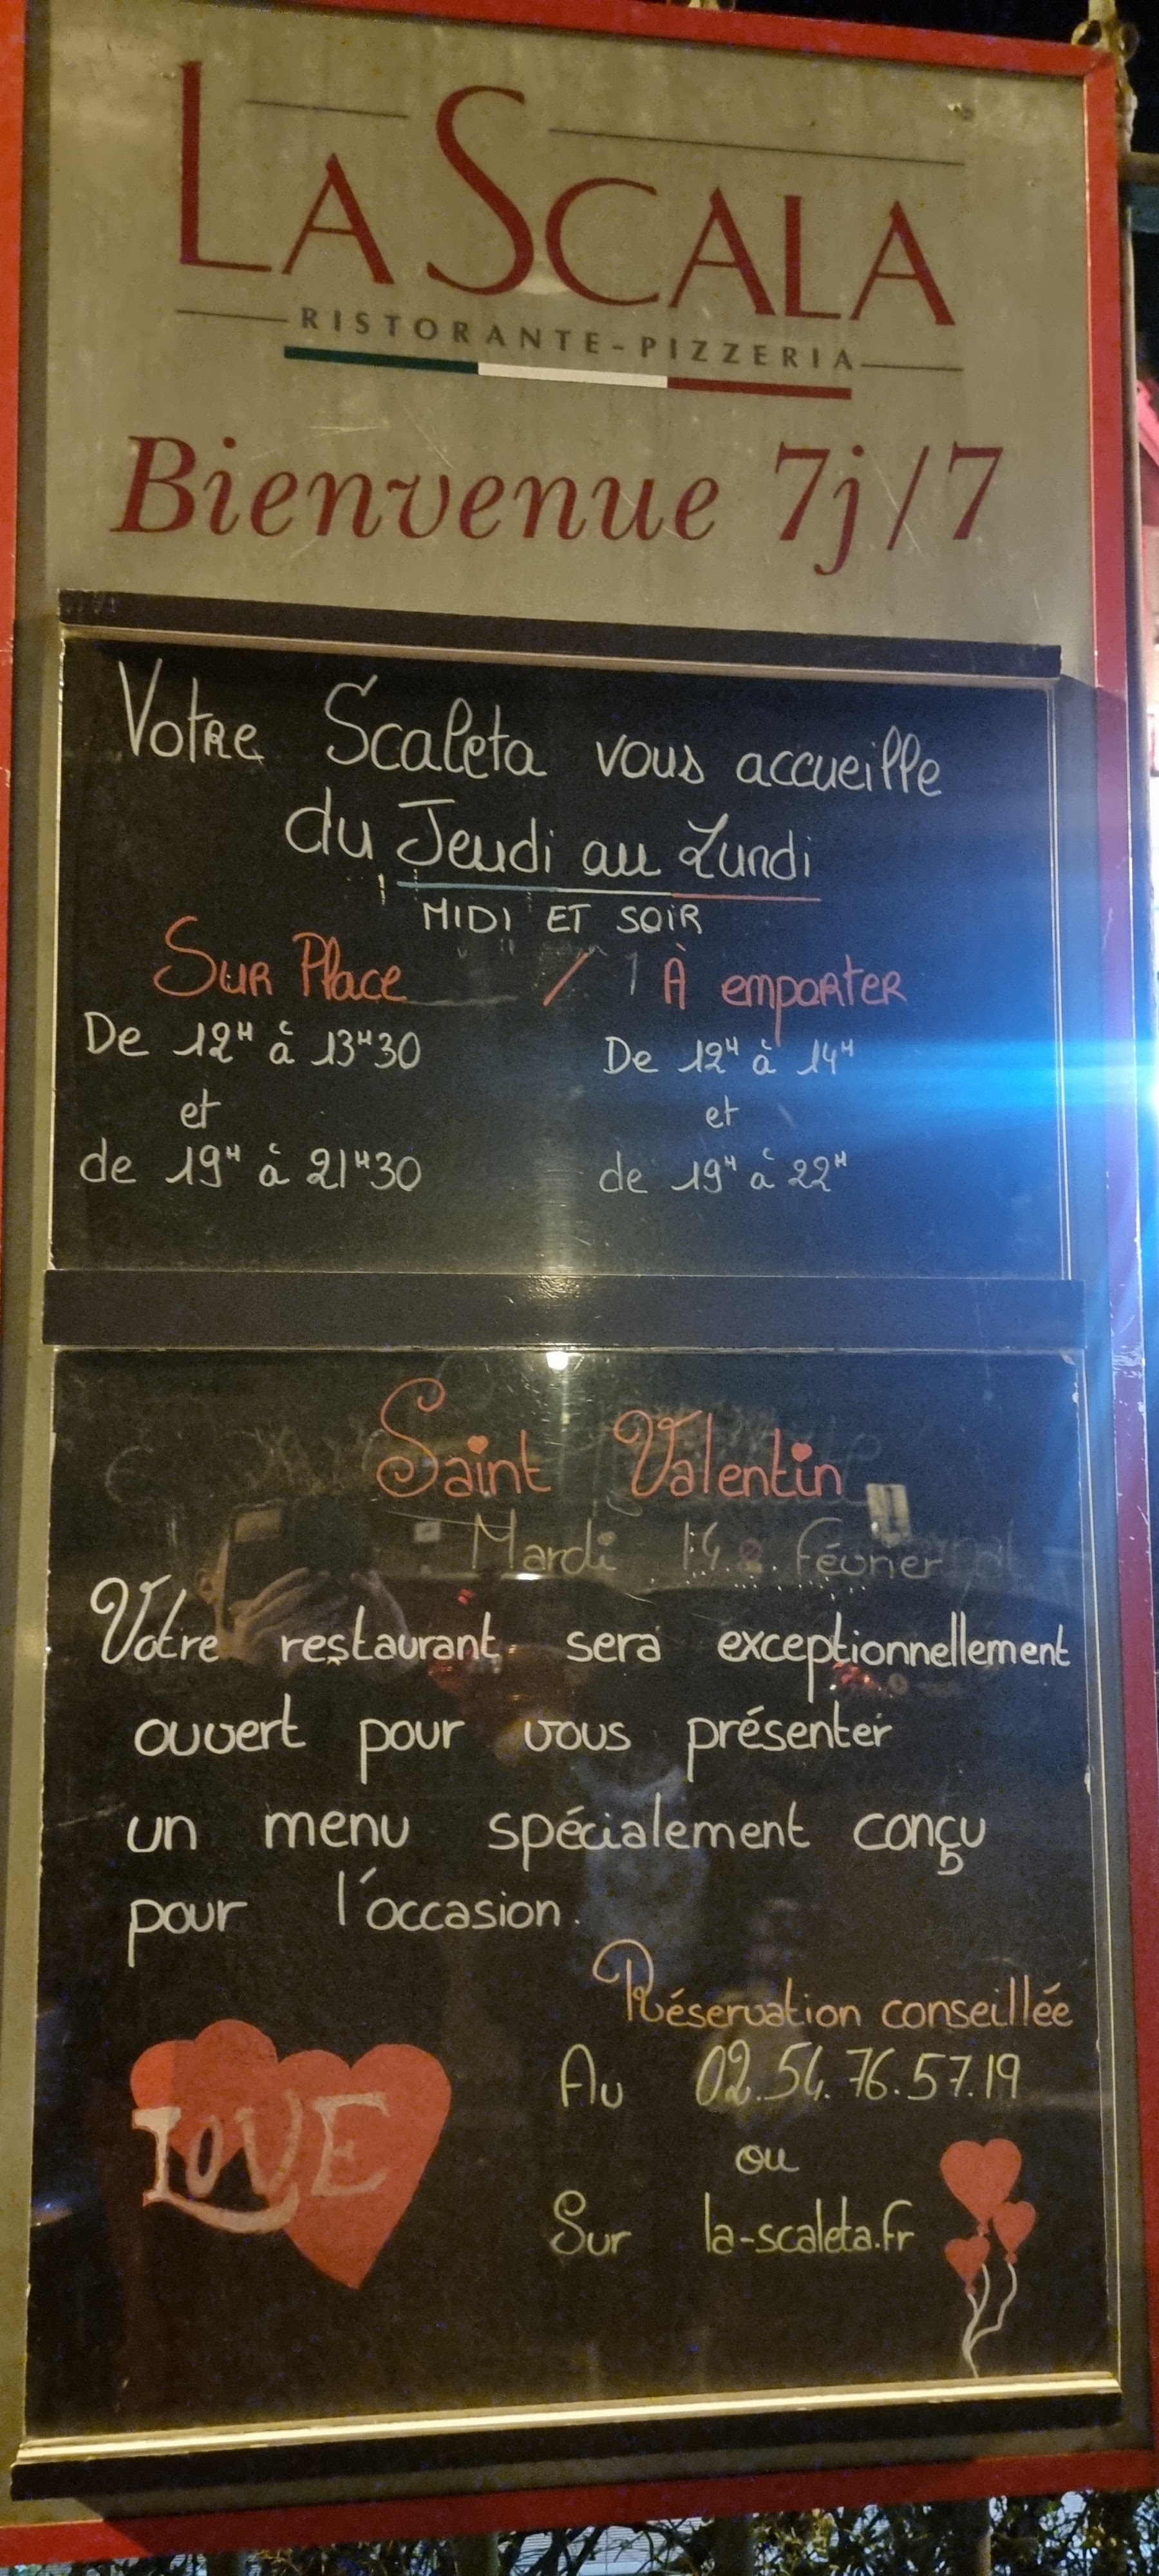 LA SCALA
RISTORANTE-PIZZERIA
Bienvenue 7j/7
Votre Scaleta vous accueille
du Jeudi au Lundi
MIDI ET SOIR
Sur Place / À emporter
De 12H à 13H30
De 12H à 14H
et
et
de 19H à 21H30
de 19H à 22H
Saint Valentin
Mardi 14 Février
Votre restaurant sera exceptionnellement
ouvert pour vous présenter
un menu spécialement conçu
pour l'occasion.
Réservation conseillée
Au 02.54.76.57.19
ou
Sur la-scaleta.fr
LOVE